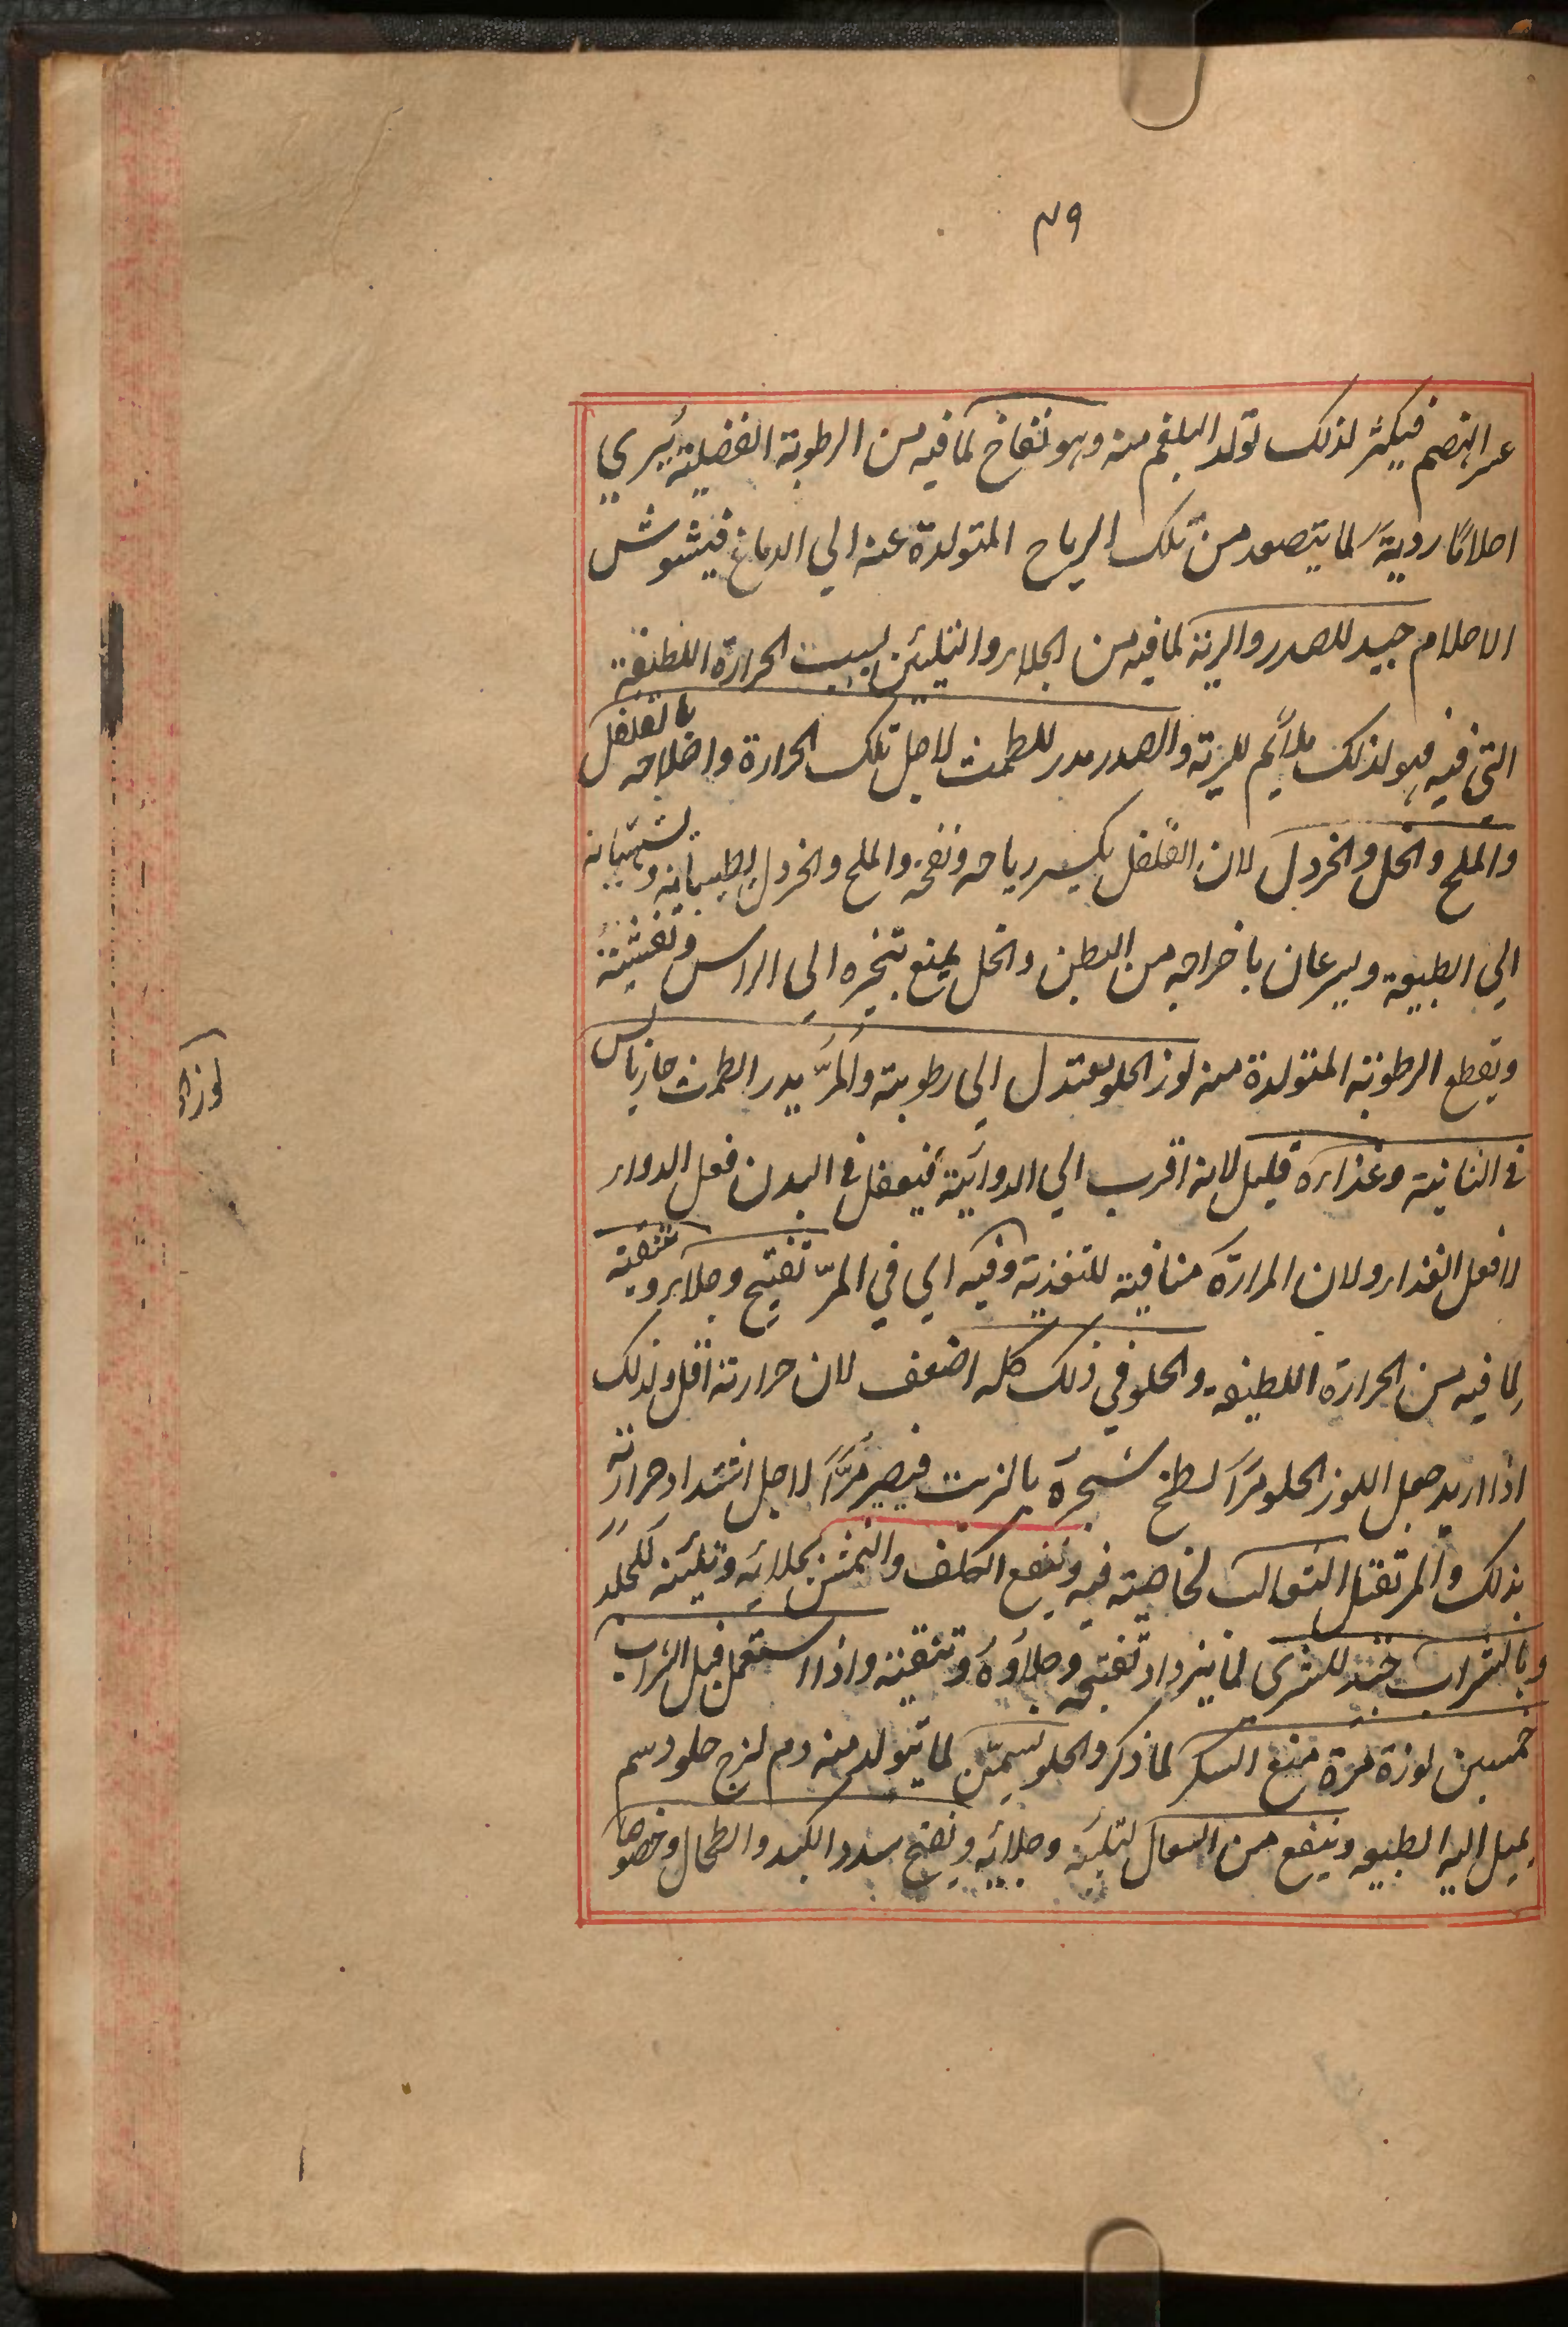 ٧٩
عسر الهضم فيكثر لذلك تولد البلغم منه وهو نفاخ لما فيه من الرطوبة الفضلية يُري
احلامًا رديةً لما يتصعد من تلك الرياح المتولدة عنه الي الدماغ فيشوش
الاحلام جيد للصدر والرية لما فيه من الجلاء والتليين بسبب الحرارة اللطيفة
التي فيه فهو لذلك ملائم للرية والصدر مدر للطمث لاجل تلك الحرارة واصلاحه بالفلفل
والملح والخل والخردل لان الفلفل يكسر رياحه ونفخه والملح والخردل يطيبانه ويشهيانه
الي الطبيعة ويسرعان باخراجه من البطن والخل يمنع تبخيره الي الراس وتغشيته
ويقطع الرطوبة المتولدة منه لوز الحلو معتدل الي رطوبته والمرّ يدر الطمث حار يابس
في الثانية وغذاءه قليل لانه اقرب الي الدوائية فيفعل في البدن فعل الدواء
لا فعل الغذاء ولان المرارة منافية للتغذية وفيه اي في المرّ تفتيح وجلاء وتنقية
لما فيه من الحرارة اللطيفة والحلو في ذلك كله اضعف لان حرارته اقل ولذلك
اذا اريد جعل اللوز الحلو مرًا لطخ شجره بالزيت فيصير مرًّا لاجل اشتداد حرارته
بذلك والمر تقتل الثعالب لخاصية فيه وينفع الكلف والنمش بجلائه وتليينه للجلد
وبالشراب جيد للشري لما يزداد تفتيحه وجلاؤه وتنقيته واذا استعمل قبل الشراب
خمسين لوزة مرة منع السكر لما ذكر والحلو يسمّن لما يتولد منه دم لزج حلو دسم
يميل اليه الطبيعة وينفع من السعال لتليينه وجلائه ويفتح سدد الكبد والطحال وخصوصا
لوز